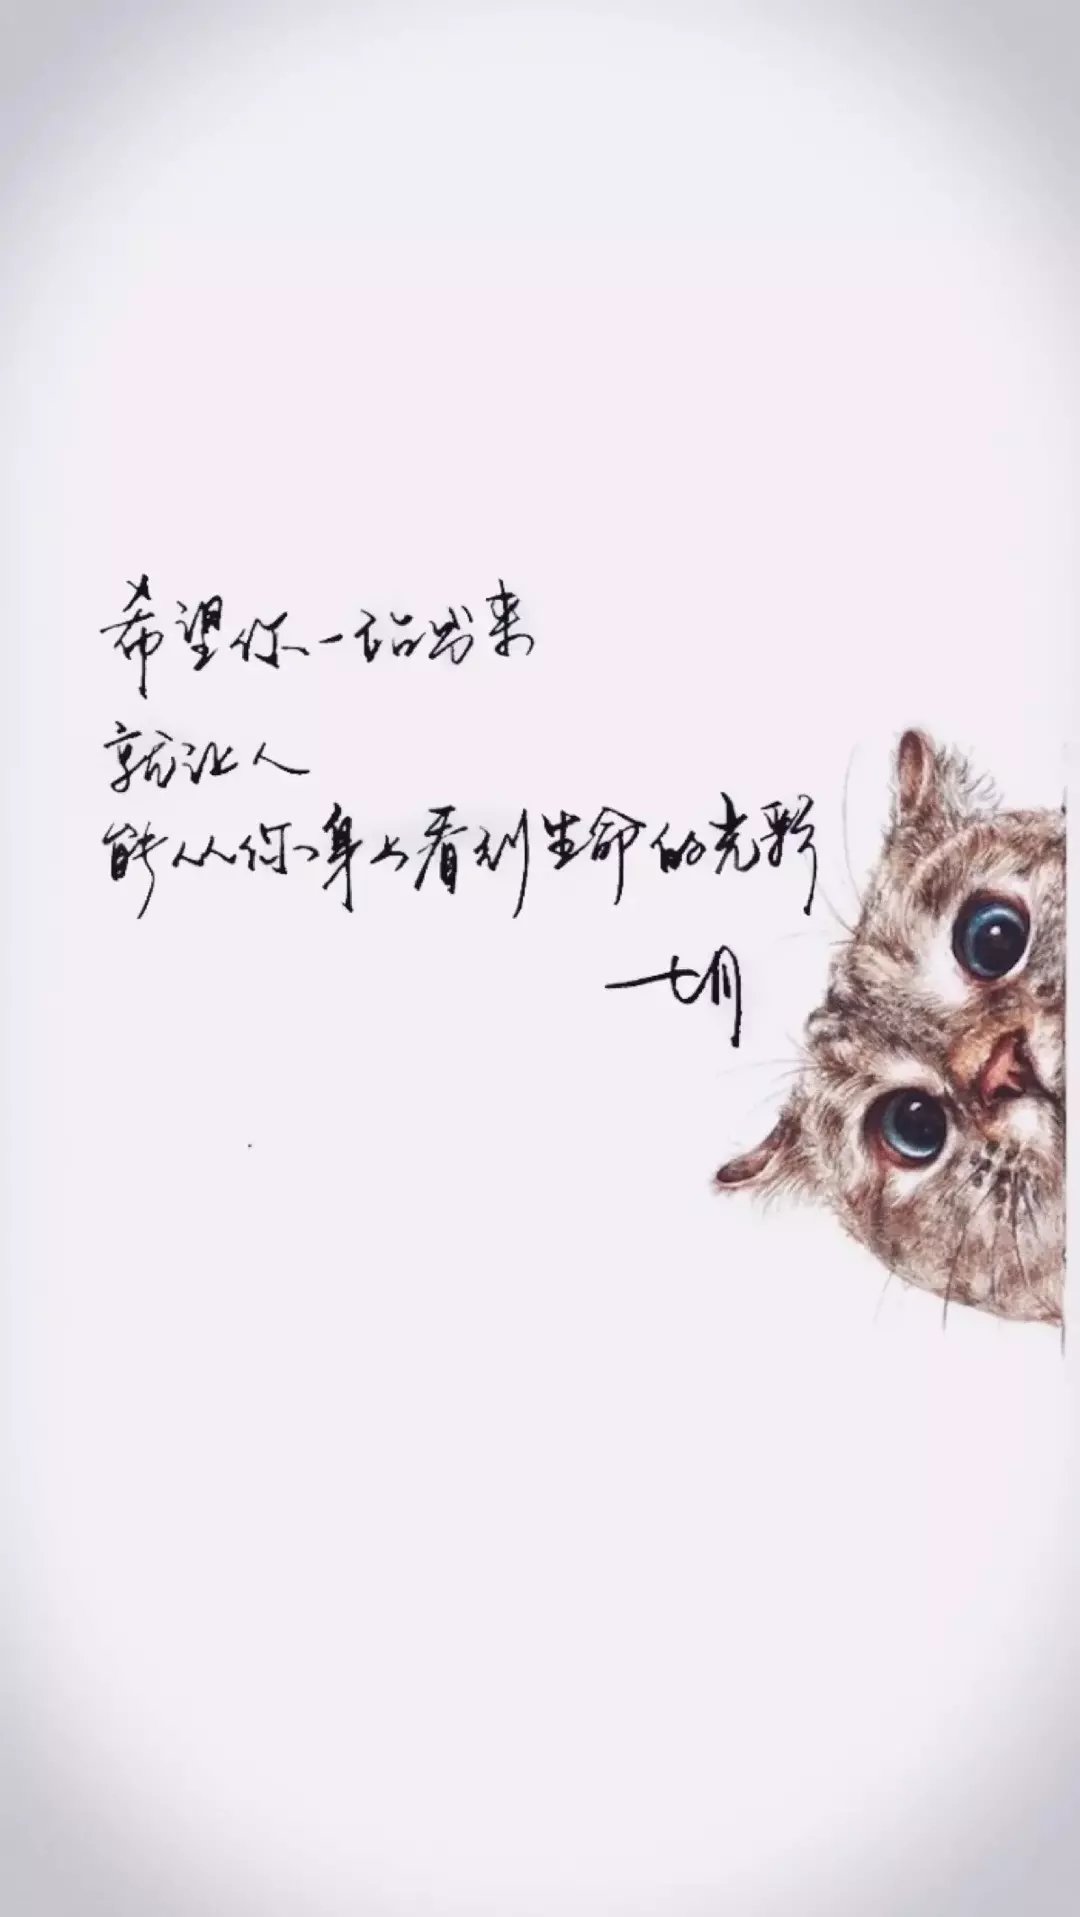 希望你一站出来
就让人
能从你身上看到生命的光彩
七月